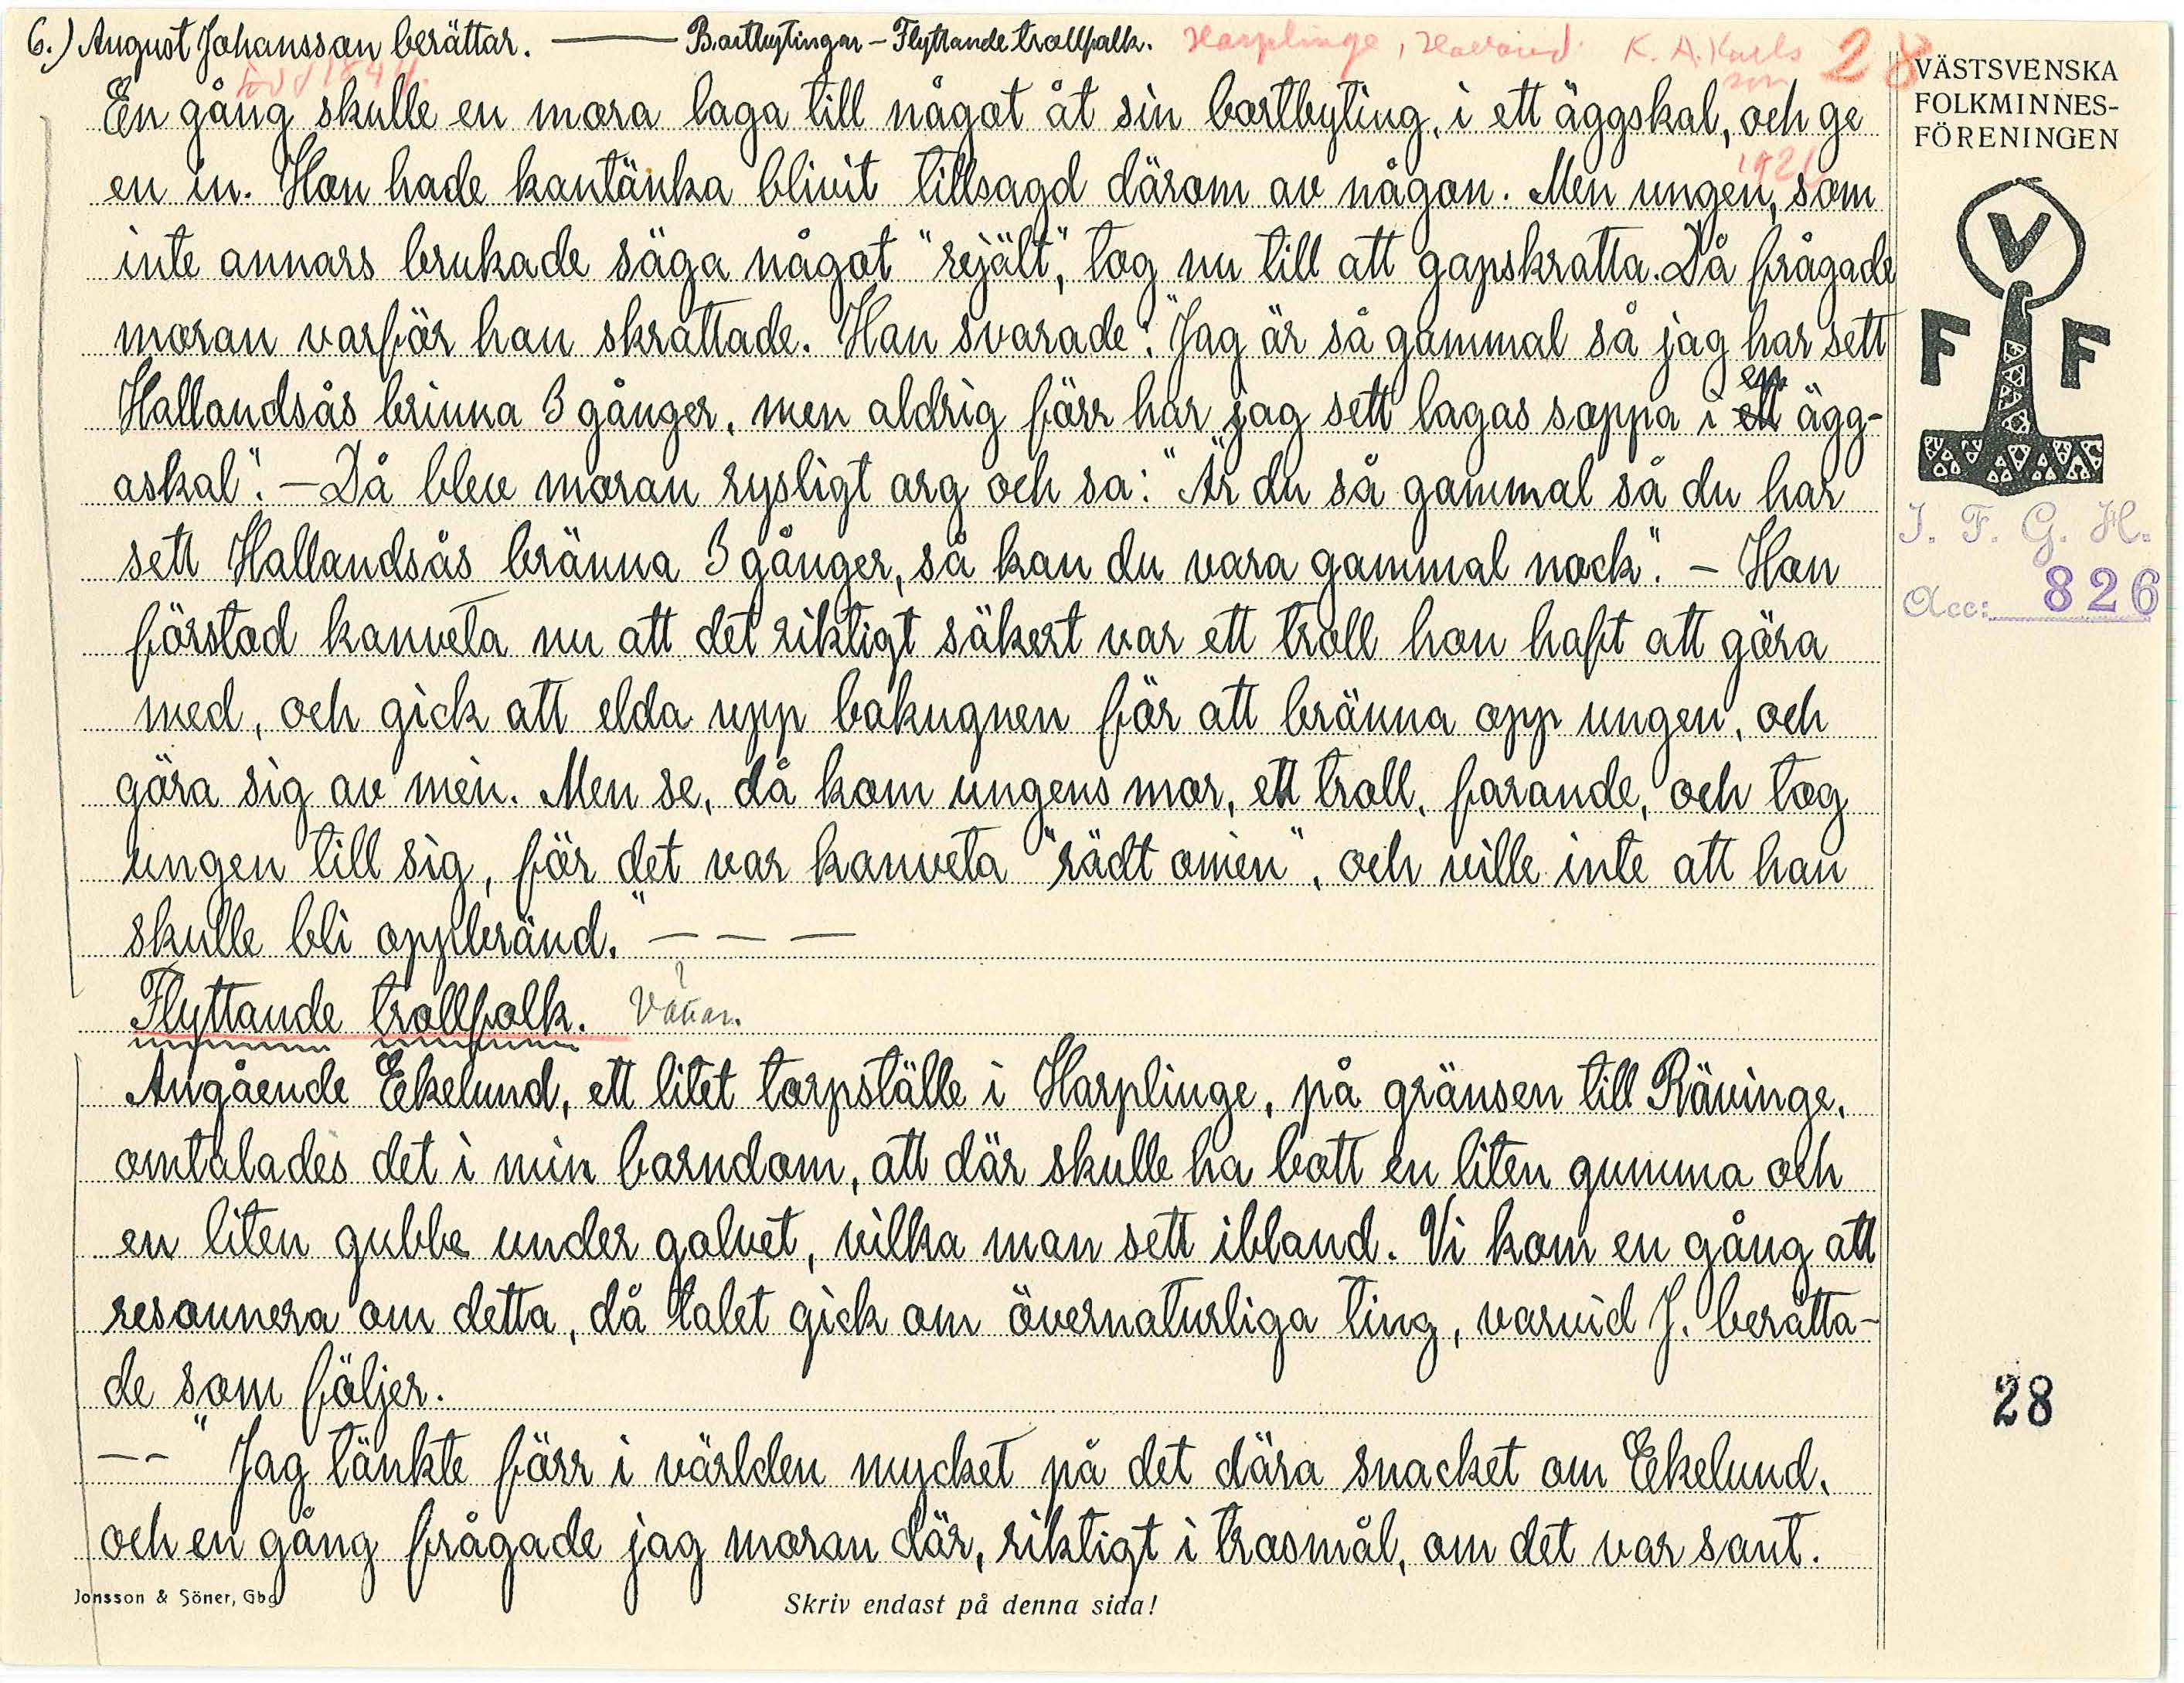 6.) August Johansson berättar. ——— Bortbytingar – Flyttande trollfolk. Harplinge, Halland K. A. Karlsson 28
född 184
En gång skulle en mora laga till något åt sin bortbyting, i ett äggskal, och ge
1926
en in. Hon hade kantänka blivit tillsagd därom av någon. Men ungen, som
inte annars brukade säga något "rejält", tog nu till att gapskratta. Då frågade
moran varför han skrattade. Han svarade: "Jag är så gammal så jag har sett
Hallandsås brinna 3 gånger, men aldrig förr har jag sett lagas soppa i ett en ägg-
askal". – Då blev moran rysligt arg och sa: "Är du så gammal så du har
sett Hallandsås bränna 3 gånger, så kan du vara gammal nock". – Hon
förstod kanveta nu att det riktigt säkert var ett troll hon haft att göra
med, och gick att elda upp bakugnen för att bränna opp ungen, och
göra sig av mén. Men se, då kom ungens mor, ett troll, farande, och tog
ungen till sig, för det var kanveta "rädt omén", och ville inte att han
skulle bli oppbränd." – – –
Flyttande trollfolk.
Angående Ekelund, ett litet torpställe i Harplinge, på gränsen till Rävinge,
omtalades det i min barndom, att där skulle ha bott en liten gumma och
en liten gubbe under golvet, vilka man sett ibland. Vi kom en gång att
resonnera om detta, då talet gick om övernaturliga ting, varvid J. berätta-
de som följer.
– – "Jag tänkte förr i världen mycket på det dära snacket om Ekelund,
och en gång frågade jag moran där, riktigt i trosmål, om det var sant.
Jonsson & Söner, Gbg
Skriv endast på denna sida!
VÄSTSVENSKA
FOLKMINNES-
FÖRENINGEN
V
F F
I. F. G. H.
Acc: 826
28